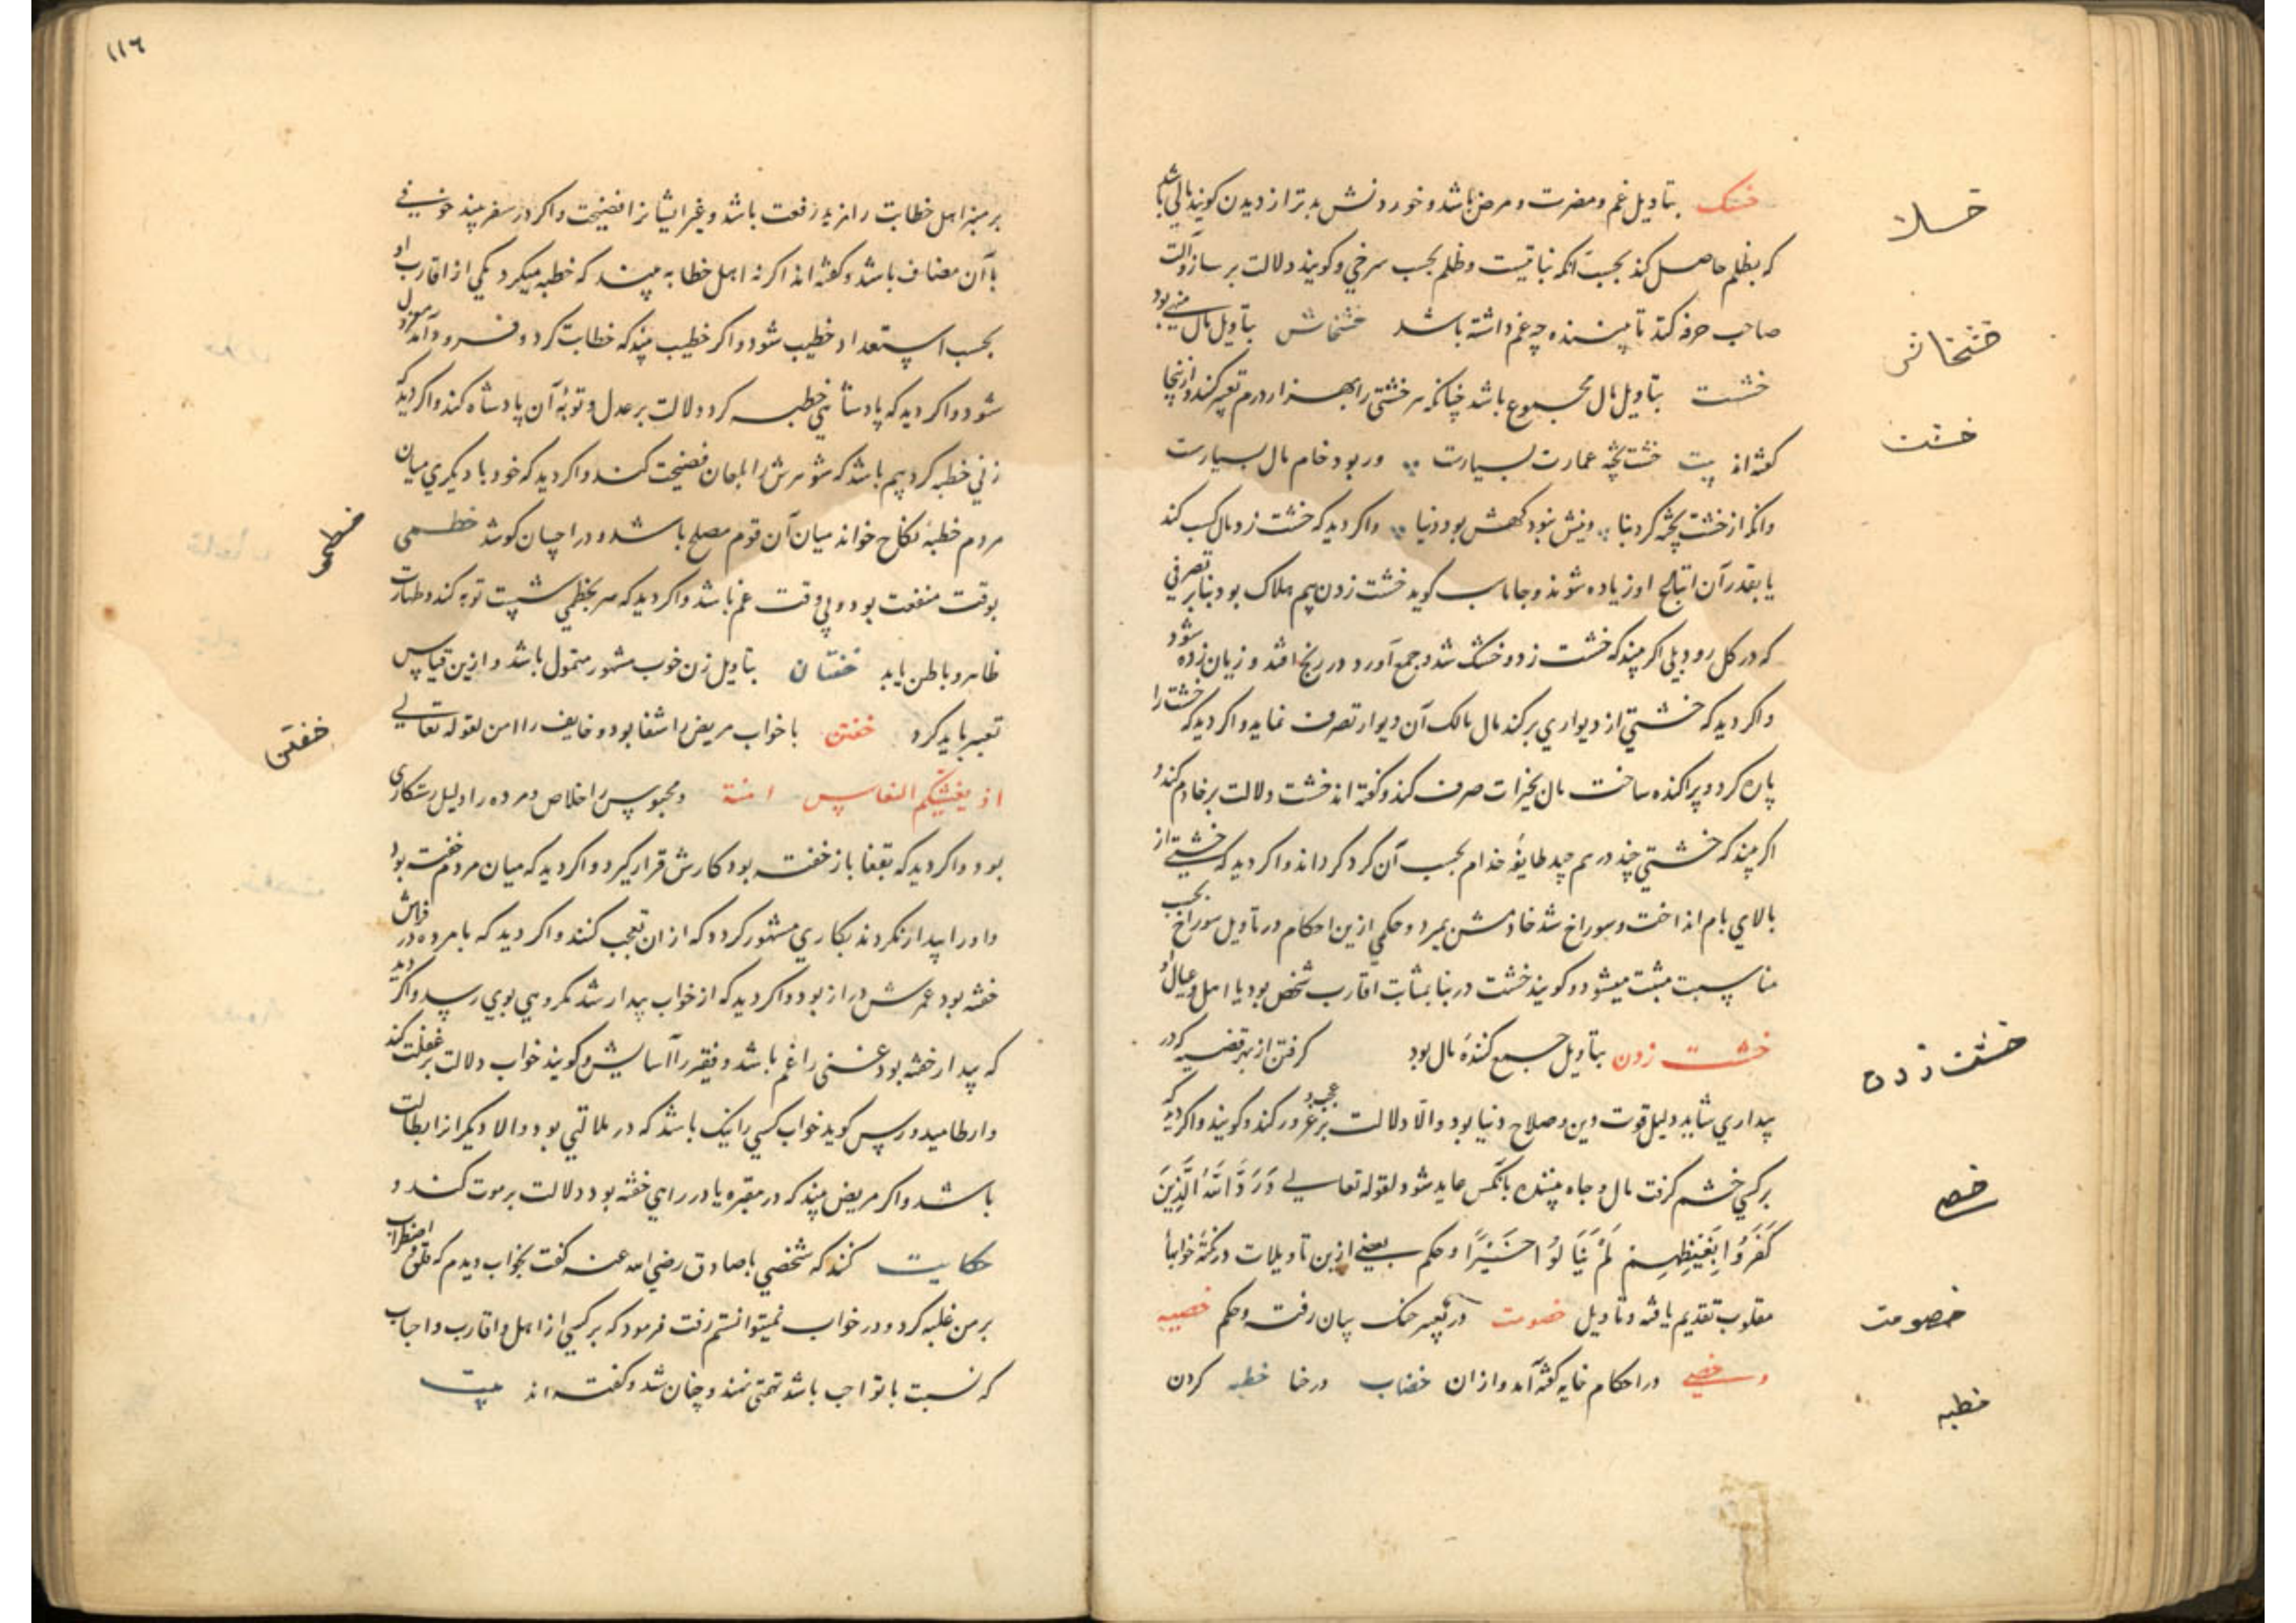 خسک بتاویل غم و مضرت و مرض باشد و خوردنش بدتر از دیدن کویند مالی باشد
که بظلم حاصل کند بحسب آنکه نباتیست و ظلم بحسب سرخی و کویند دلالت بر ساز و آلت
صاحب حرفه کند تا بیننده چه غم داشته باشد خشخاش بتاویل مال بود
خشت بتاویل مال مجموع باشد چنانکه هر خشتی را بهزار درم تعبیر کنند و از اینجا
کفته اند بیت خشت پخته عمارت بسیارست ور بود خام مال بسیارست
وانکه از خشت پخته کرد بنا دینش نبود کهش بود دنیا واکر دید که خشت زد مال کسب کند
یا بقدر آن اتباع او زیاده شوند و جاماسب کوید خشت زدن بیم هلاک بود بنابر تصرفی
که در کل رود بلی اکر بیند که خشت زد و خشک شد و جمع آورد در رنج افتد و زیان زده شود
واکر دید که خشتی از دیواری برکند مال مالک آن دیوار تصرف نماید واکر دید که خشت را
پاره کرد و پراکنده ساخت مال بخیرات صرف کند و کفته اند خشت دلالت بر خادم کند و
اکر بیند که خشتی چند در هم چید طایفهٔ خدام بحسب آن کرد کرداند واکر دید که خشتی از
بالای بام انداخت و سوراخ شد خادمش بمرد و حکمی ازین احکام در تاویل سوراخ بحسب
مناسبت مثبت میشود و کویند خشت در بنا بمثابت اقارب شخص بود یا اهل و عیال او
خشت زدن بتاویل جمع کنندهٔ مال بود کرفتن از بهر قضیه که در
بیداری شاید دلیل قوت دین و صلاح دنیا بود والا دلالت بر عجب و غرور کند و کویند واکر دید که
بر کسی خشم کرفت مال و جاه بیننده بانکس عاید شود لقوله تعالی وَرَدَّ اللَّهُ الَّذِینَ
کَفَرُوا بِغَیْظِهِمْ لَمْ یَنَالُوا خَیْرًا و حکم بعضی ازین تاویلات در نکتهٔ خوابها
مقلوب تقدیم یافته و تاویل خصومت در تعبیر جنک بیان رفت و حکم خصیه
و خصی در احکام خایه کفته آمد و از ان خضاب در حنا خطبه کردن
خسک
خشخاش
خشت
خشت زدن
خصم
خصومت
خطبه
۱۱٦
بر منبر اهل خطابت را مزید رفعت باشد و غیر ایشانرا فضیحت واکر در سفر بیند خوفی
با آن مضاف باشد و کفته اند اکر نه اهل خطابه بیند که خطبه میکرد یکی از اقارب او
بحسب استعداد خطیب شود واکر خطیب بیند که خطابت کرد و فرود آمد معزول
شود واکر دید که پادشاهی خطبه کرد دلالت بر عدل و توبهٔ آن پادشاه کند واکر دید که
زنی خطبه کرد بیم باشد که شوهرش را بلعان فضیحت کند واکر دید که خود با دیکری میان
مردم خطبهٔ نکاح خواند میان آن قوم مصلح باشد و در احسان کوشد خطمی
بوقت منفعت بود و بی وقت غم باشد واکر دید که سر بخطمی شست توبه کند و طهارت
ظاهر و باطن یابد خفتان بتاویل زن خوب مشهور متمول باشد و ازین قیاس
تعبیر باید کرد خفتن با خواب مریض را شفا بود و خایف را امن لقوله تعالی
اذ یغشیکم النعاس امنة و محبوس را خلاص و مرده را دلیل رستکاری
بود واکر دید که بقفا باز خفته بود کارش قرار کیرد واکر دید که میان مردم خفته بود
و او را بیدار نکردند بکاری مشهور کردد که از ان تعجب کنند واکر دید که با مرده در فراش
خفته بود عمرش دراز بود واکر دید که از خواب بیدار شد مکروهی بوی رسد واکر دید
که بیدار خفته بود غنی را غم باشد و فقیر را آسایش و کویند خواب دلالت بر غفلت کند
وارطامیدورس کوید خواب کسی را نیک باشد که در ملالتی بود والا دیکر از ابطالت
باشد واکر مریض بیند که در مقبره یا در راهی خفته بود دلالت بر موت کند و
حکایت کنند که شخصی با صادق رضی الله عنه کفت بخواب دیدم که قلق و اضطراب
بر من غلبه کرد و در خواب نمیتوانستم رفت فرمود که بر کسی از اهل و اقارب و احباب
که نسبت با تو احب باشد تهمتی نهند و چنان شد و کفته اند بیت
خطمی
خفتن